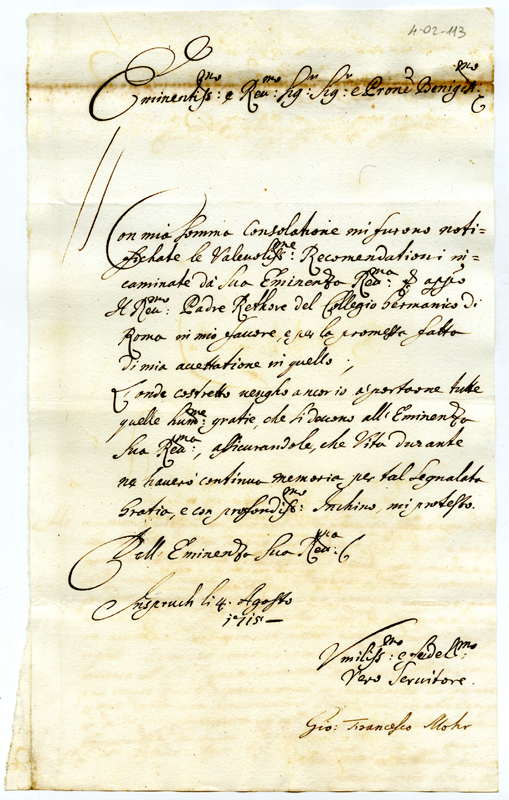 4-02-113
Eminentiss:mo e Reu:mo Sig:r Sig:r e Prone Benigss:mo
Con mia somma Consolatione mi furono noti=
fichate le Valeuoliss:me Recomendationi in=
caminate da Sua Eminenza Reu:ma appso
Il Reu:mo Padre Rethore del Collegio Germanico di
Roma in mio fauore, e per la promessa fatta
di mia accettatione in quello;
onde costretto uengho ancor io a portarne tutte
quelle hum:me gratie, che si deuono all' Eminenza
Sua Reu:ma, assicurandole, che Vita durante
ne hauerò continua memoria per tal Segnalata
Gratia, e con profondiss:mo Inchino, mi protesto.
Dell' Eminenza Sua Reu:ma
Inspruch li 4. Agosto
1715
Vmiliss:mo e fedel:mo
Vero Seruitore.
Gio: Francesco Mohr